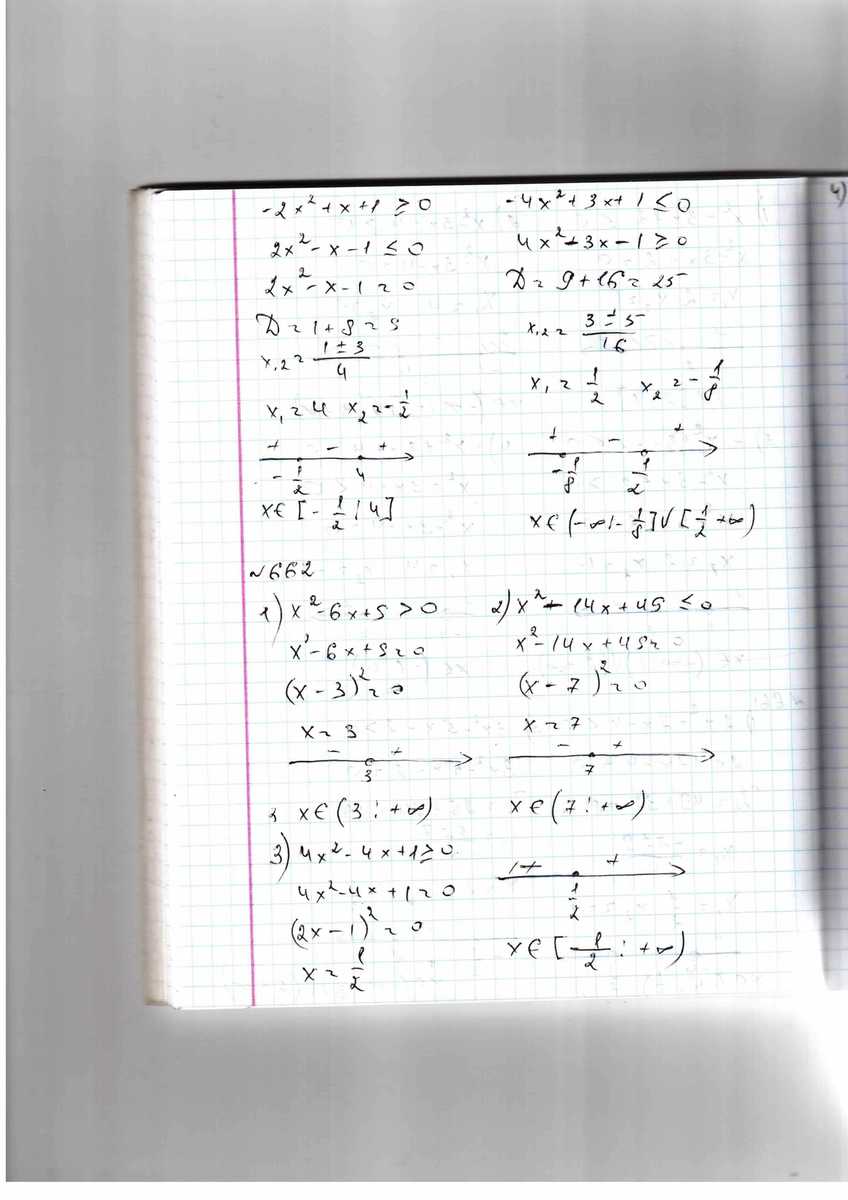 -2x² + x + 1 ≥ 0
2x² - x - 1 ≤ 0
2x² - x - 1 = 0
D = 1 + 8 = 9
x₁,₂ = (1 ± 3)/4
x₁ = 4 x₂ = -1/2
+ - +
-1/2 4
x ∈ [-1/2; 4]
-4x² + 3x + 1 ≤ 0
4x² - 3x - 1 ≥ 0
D = 9 + 16 = 25
x₁,₂ = (3 ± 5)/16
x₁ = 1/2 x₂ = -1/8
+ - +
-1/8 1/2
x ∈ (-∞; -1/8] V [1/2 +∞)
№662
1) x² - 6x + 9 > 0
x² - 6x + 9 = 0
(x - 3)² = 0
x = 3
- +
3
x ∈ (3; +∞)
2) x² - 14x + 49 ≤ 0
x² - 14x + 49 = 0
(x - 7)² = 0
x = 7
- +
7
x ∈ (7; +∞)
3) 4x² - 4x + 1 ≥ 0
4x² - 4x + 1 = 0
(2x - 1)² = 0
x = 1/2
+ +
1/2
x ∈ [-1/2; +∞)
4)